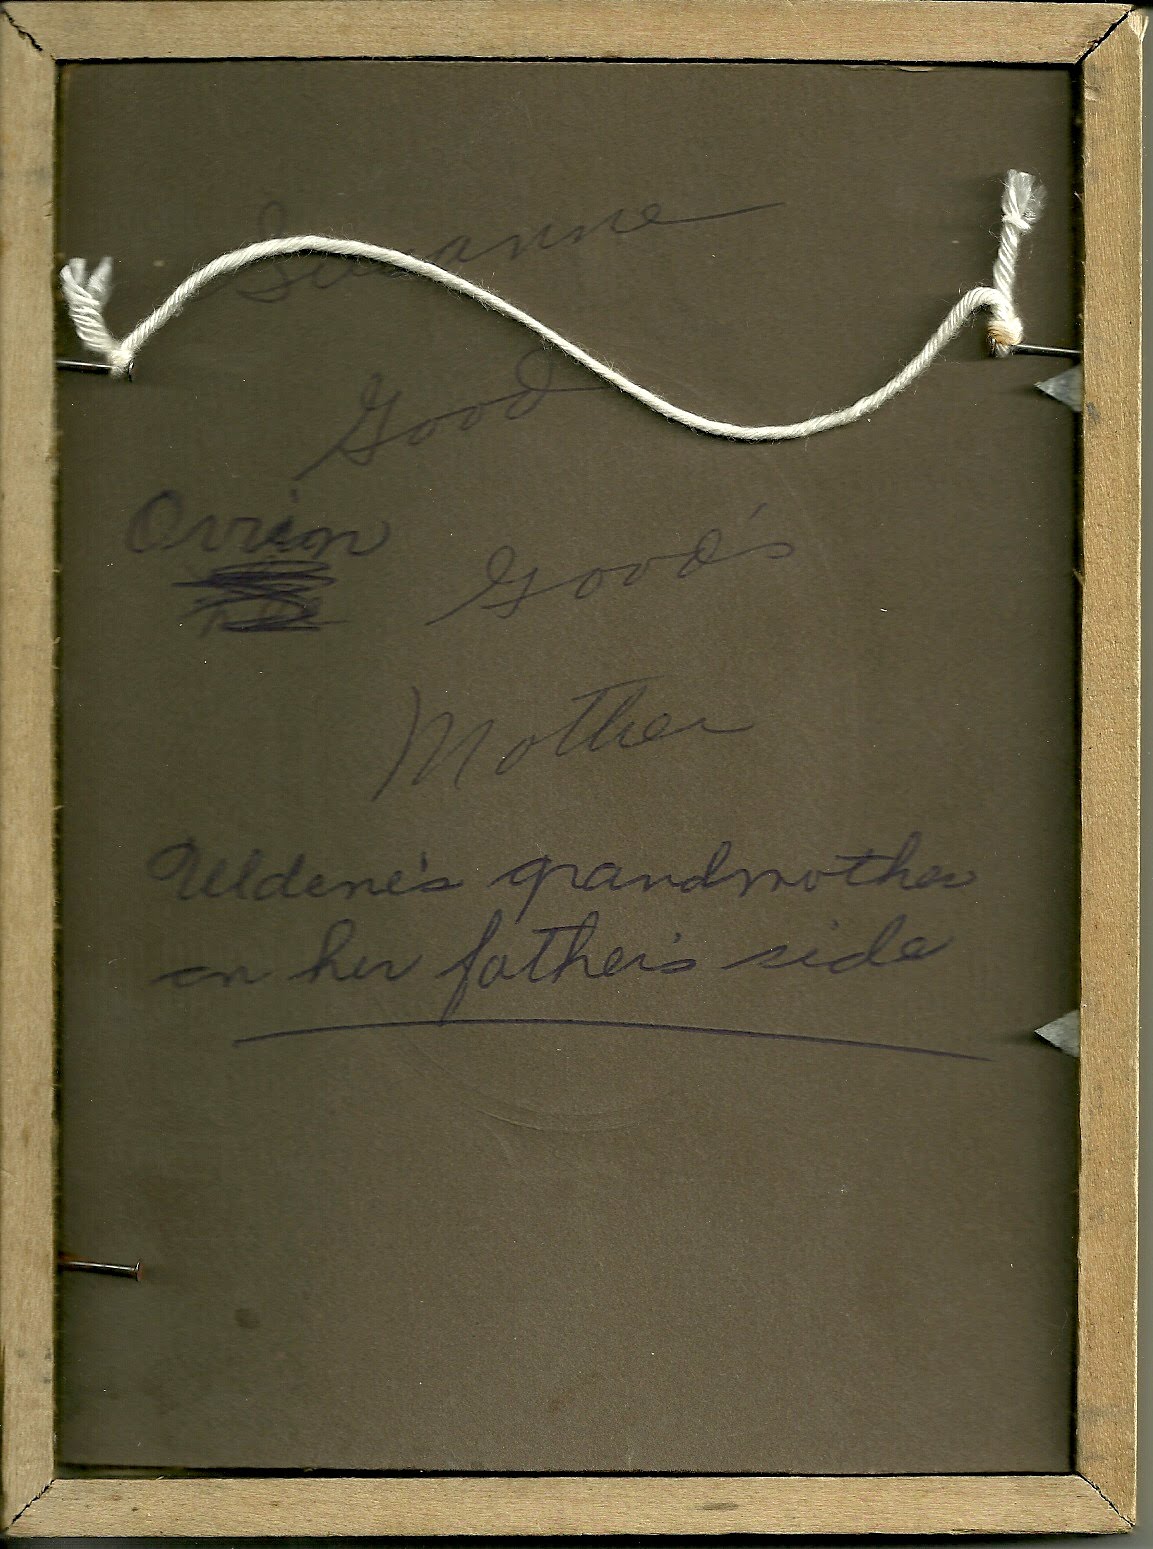 Suzanne
Good
Orrion Good's
Mother
Uldene's grandmother
on her father's side